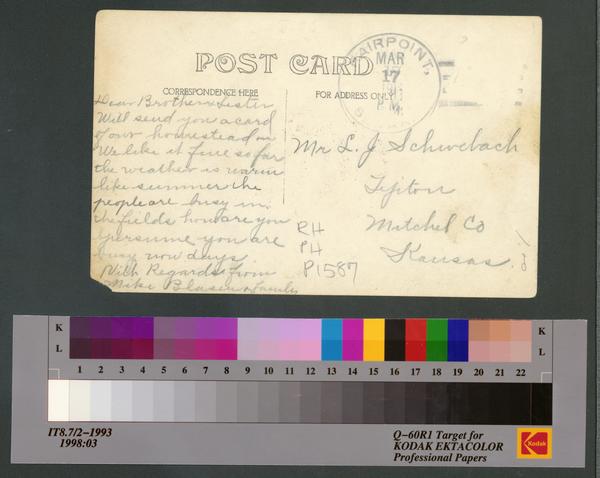 POST CARD
CORRESPONDENCE HERE
FOR ADDRESS ONLY
FAIRPOINT,
MAR
17
P M
S
Dear Brother & Sister
Will send you a card
of our homestead
We like it fine so far
the weather is warm
like summer the
people are busy in
the fields how are you
I persume you are
busy now days.
With Regards from
Mike Blasen & Family
Mr L. J. Schwebach
Tipton
Mitchel Co
Kansas.
RH
PH
P1587
K
L
1 2 3 4 5 6 7 8 9 10 11 12 13 14 15 16 17 18 19 20 21 22
K
L
IT8.7/2-1993
1998:03
Q-60R1 Target for
KODAK EKTACOLOR
Professional Papers
Kodak